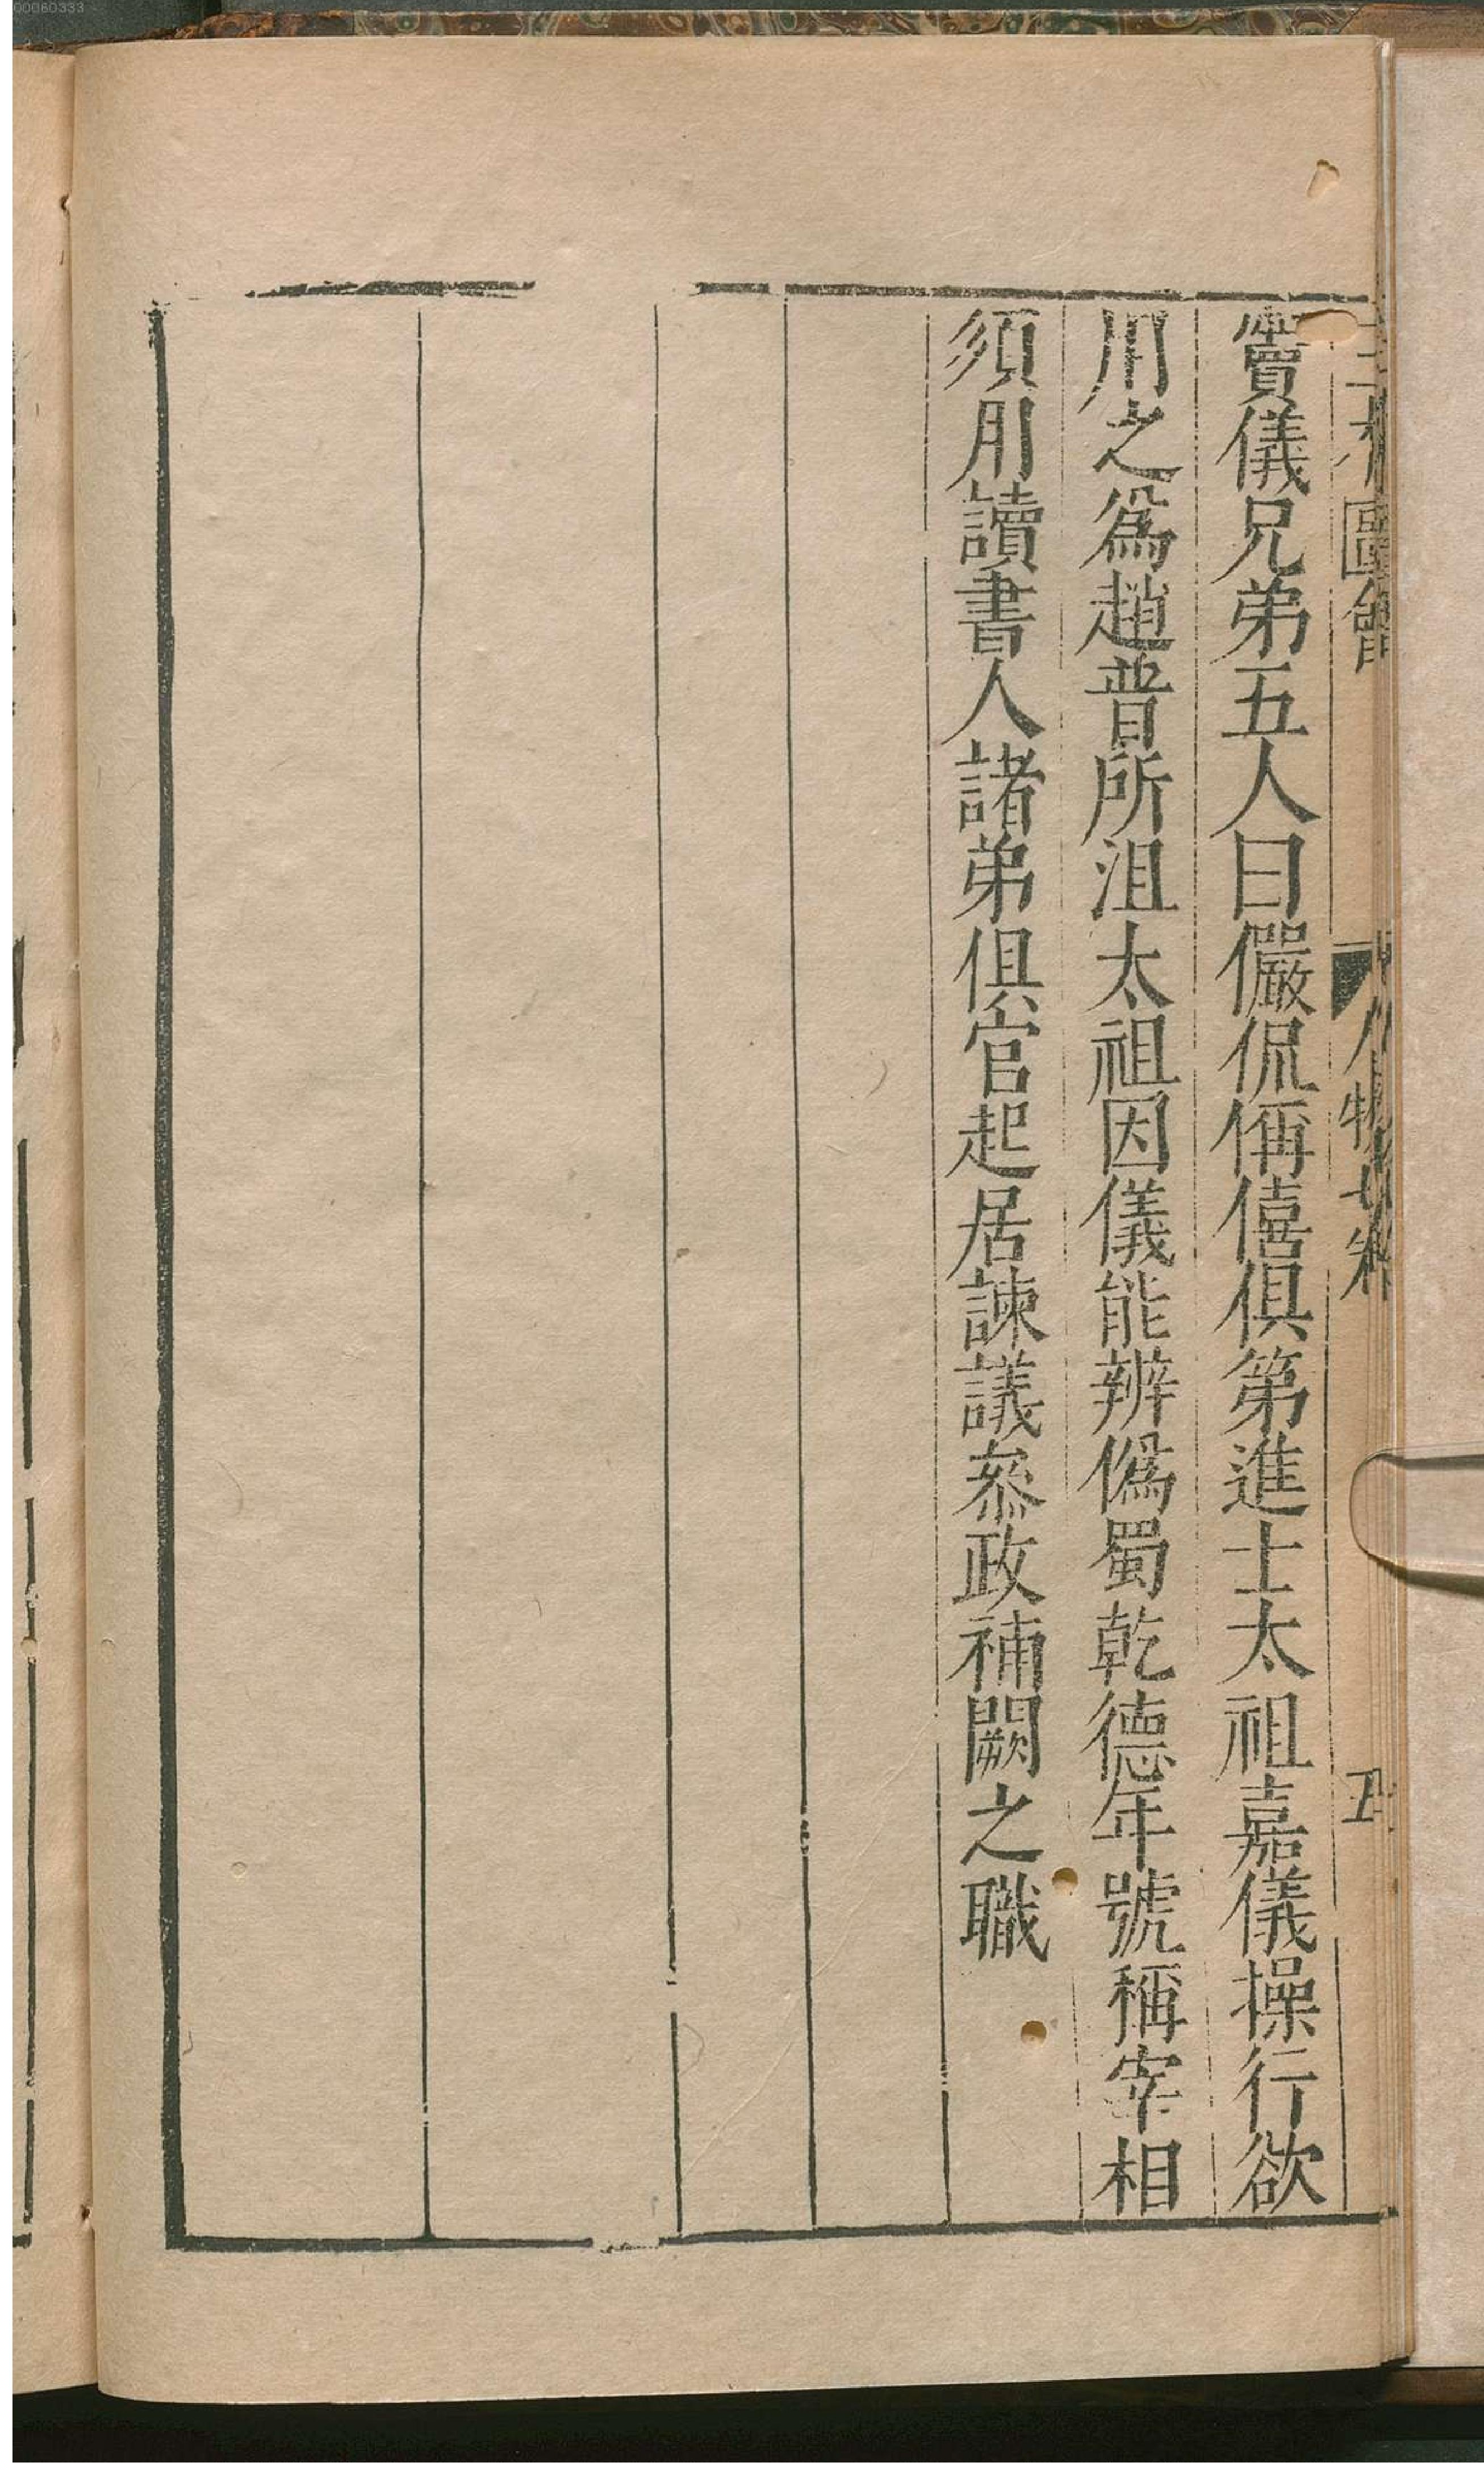 三才圖會 人物七卷 五
竇儀兄弟五人曰儼侃偁僖俱第進士太祖嘉儀操行欲
用之爲趙普所沮太祖因儀能辨僞蜀乾德年號稱宰相
須用讀書人諸弟俱官起居諫議叅政補闕之職
00060333